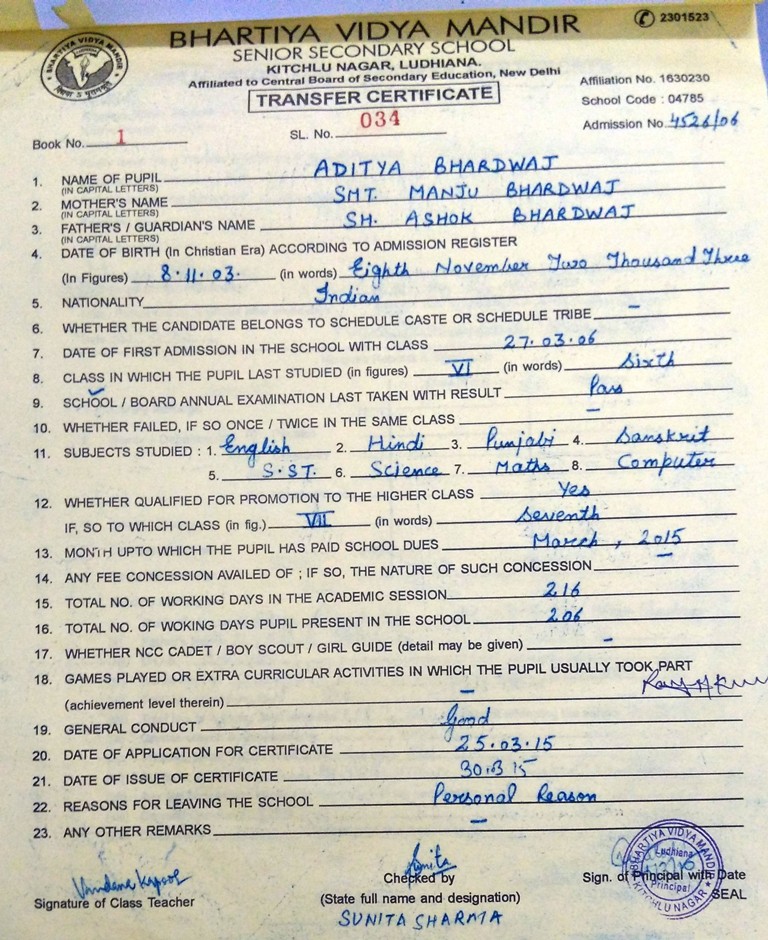 BHARTIYA VIDYA MANDIR
✆ 2301523
SENIOR SECONDARY SCHOOL
KITCHLU NAGAR, LUDHIANA.
Affiliated to Central Board of Secondary Education, New Delhi
TRANSFER CERTIFICATE
BHARTIYA VIDYA MANDIR
Affiliation No. 1630230
School Code : 04785
Admission No. 4526/06
Book No. 1
SL. No. 034
1. NAME OF PUPIL ADITYA BHARDWAJ
(IN CAPITAL LETTERS)
2. MOTHER'S NAME SMT. MANJU BHARDWAJ
(IN CAPITAL LETTERS)
3. FATHER'S / GUARDIAN'S NAME SH. ASHOK BHARDWAJ
(IN CAPITAL LETTERS)
4. DATE OF BIRTH (In Christian Era) ACCORDING TO ADMISSION REGISTER
(In Figures) 8.11.03. (in words) Eighth November Two Thousand Three
5. NATIONALITY Indian
6. WHETHER THE CANDIDATE BELONGS TO SCHEDULE CASTE OR SCHEDULE TRIBE –
7. DATE OF FIRST ADMISSION IN THE SCHOOL WITH CLASS 27.03.06
8. CLASS IN WHICH THE PUPIL LAST STUDIED (in figures) VI (in words) Sixth
9. SCHOOL / BOARD ANNUAL EXAMINATION LAST TAKEN WITH RESULT Pass
10. WHETHER FAILED, IF SO ONCE / TWICE IN THE SAME CLASS –
11. SUBJECTS STUDIED : 1. English 2. Hindi 3. Punjabi 4. Sanskrit
5. S.ST. 6. Science 7. Maths 8. Computer
12. WHETHER QUALIFIED FOR PROMOTION TO THE HIGHER CLASS Yes
IF, SO TO WHICH CLASS (in fig.) VII (in words) Seventh
13. MONTH UPTO WHICH THE PUPIL HAS PAID SCHOOL DUES March, 2015
14. ANY FEE CONCESSION AVAILED OF ; IF SO, THE NATURE OF SUCH CONCESSION –
15. TOTAL NO. OF WORKING DAYS IN THE ACADEMIC SESSION 216
16. TOTAL NO. OF WOKING DAYS PUPIL PRESENT IN THE SCHOOL 206
17. WHETHER NCC CADET / BOY SCOUT / GIRL GUIDE (detail may be given) –
18. GAMES PLAYED OR EXTRA CURRICULAR ACTIVITIES IN WHICH THE PUPIL USUALLY TOOK PART
(achievement level therein) –
19. GENERAL CONDUCT Good
20. DATE OF APPLICATION FOR CERTIFICATE 25.03.15
21. DATE OF ISSUE OF CERTIFICATE 30.3.15
22. REASONS FOR LEAVING THE SCHOOL Personal Reason
23. ANY OTHER REMARKS –
Vandana Kapoor
Signature of Class Teacher
Sunita
Checked by
(State full name and designation)
SUNITA SHARMA
BHARTIYA VIDYA MANDIR
Ludhiana
Principal
KITCHLU NAGAR
Sign. of Principal with Date
SEAL